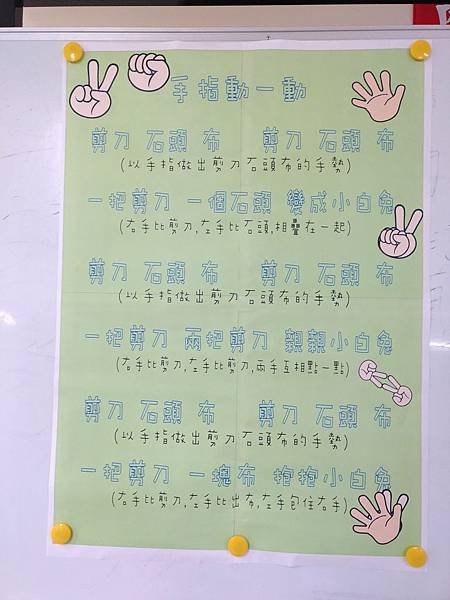 手指動一動
剪刀 石頭 布 剪刀 石頭 布
(以手指做出剪刀石頭布的手勢)
一把剪刀 一個石頭 變成小白兔
(右手比剪刀,左手比石頭,相疊在一起)
剪刀 石頭 布 剪刀 石頭 布
(以手指做出剪刀石頭布的手勢)
一把剪刀 兩把剪刀 親親小白兔
(右手比剪刀,左手比剪刀,兩手互相點一點)
剪刀 石頭 布 剪刀 石頭 布
(以手指做出剪刀石頭布的手勢)
一把剪刀 一塊布 抱抱小白兔
(右手比剪刀,左手比出布,左手包住右手)